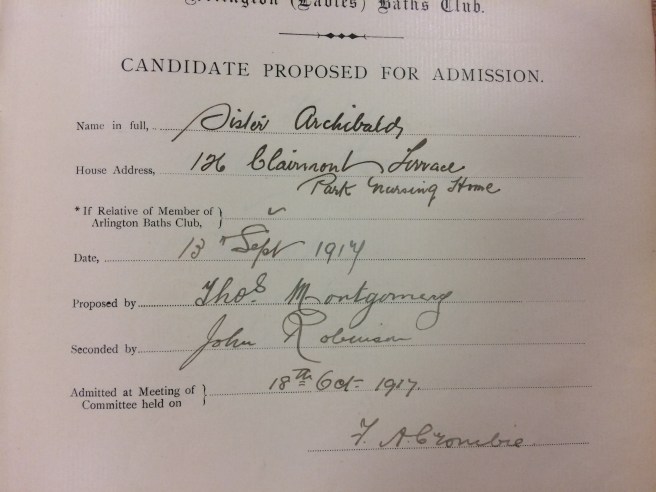 Arlington (Ladies) Baths Club.
CANDIDATE PROPOSED FOR ADMISSION.
Name in full, Sister Archibald
House Address, 126 Clairmont Terrace
Park Nursing Home
* If Relative of Member of
Arlington Baths Club,
Date, 13 Sept 1917
Proposed by Thos. Montgomery
Seconded by John Robinson
Admitted at Meeting of
Committee held on 18th Oct. 1917.
F. A. Crombie